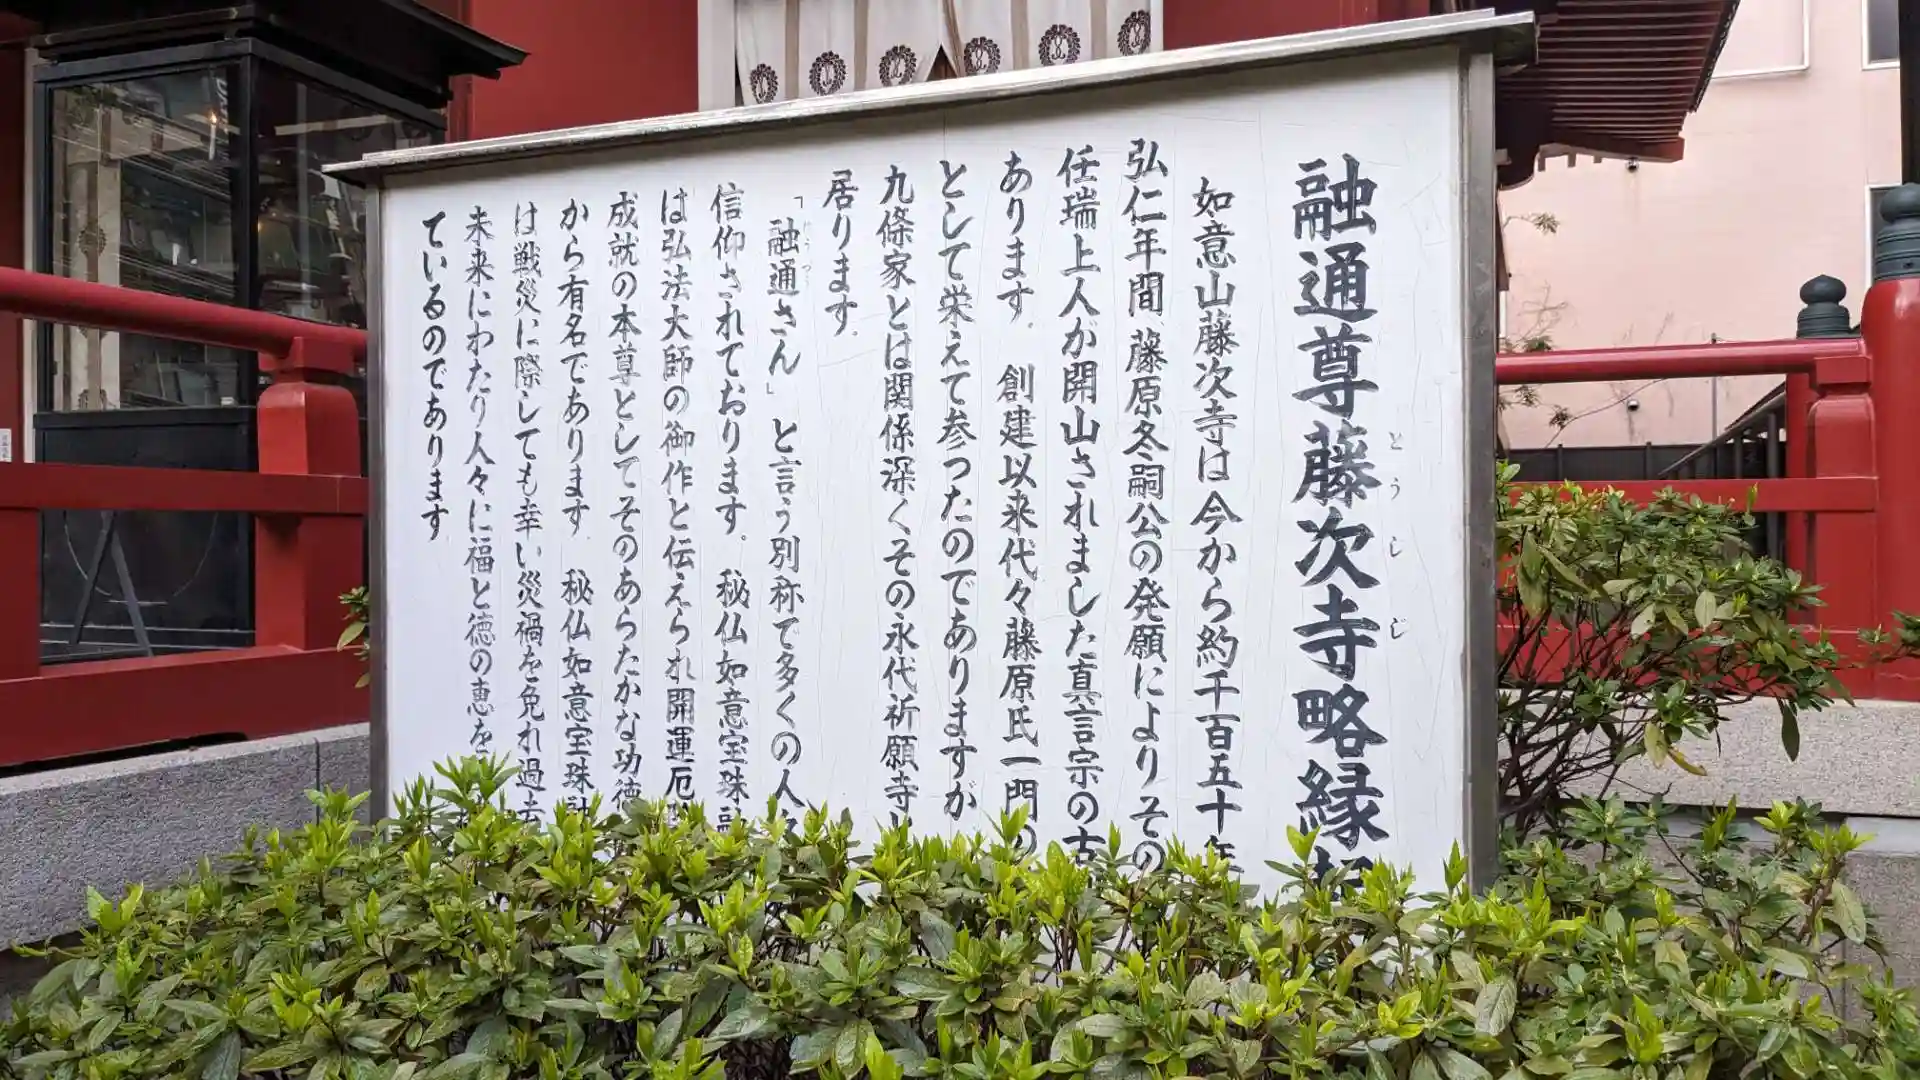 融通尊藤次寺略縁
とうしじ
如意山藤次寺は今から約千百五十年
弘仁年間、藤原冬嗣公の発願によりその
任瑞上人が開山されました真言宗の古
あります。創建以来代々藤原氏一門の
として栄えて参つたのでありますが
九條家とは関係深くその永代祈願寺
居ります。
「融通さん」と言う別称で多くの人々
信仰されております。秘仏如意宝珠融
は弘法大師の御作と伝えられ開運厄除
成就の本尊としてそのあらたかな功徳
から有名であります。秘仏如意宝珠融
は戦災に際しても幸い災禍を免れ過去
未来にわたり人々に福と徳の恵を
ているのであります